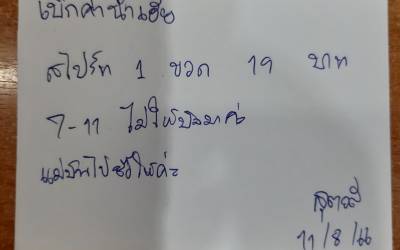 เบิกค่าน้ำเฮีย
สไปร์ท 1 ขวด 19 บาท
7-11 ไม่ให้บิลมาค่ะ
แม่บ้านไปซื้อให้ค่ะ
11/8/